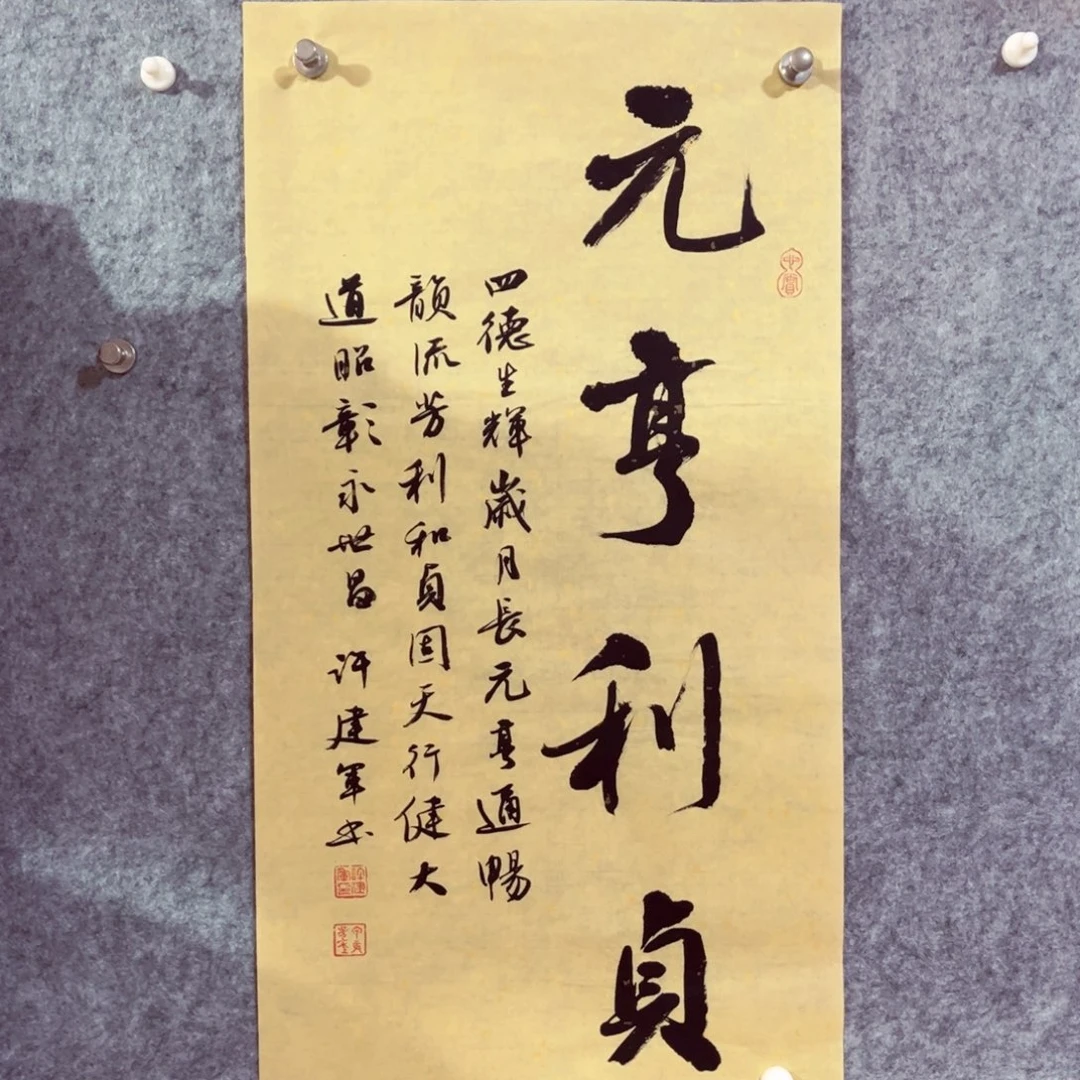 元亨利貞
四德生輝歲月長元亨通暢
韻流芳利和貞固天行健大
道昭彰永世昌 許建軍书